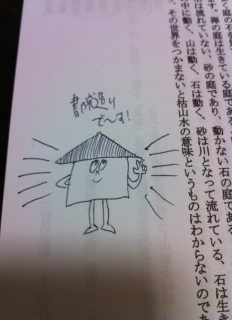 書院造り
で〜す!
庭の石を
す。禅の庭は生きている庭で
は流れていない、砂の庭であり、動かない石の庭である
中に動く、山は動く、石は動く、砂は川となって流れている、石は生き
、その世界をつかまないと枯山水の意味というものはわからないのでも